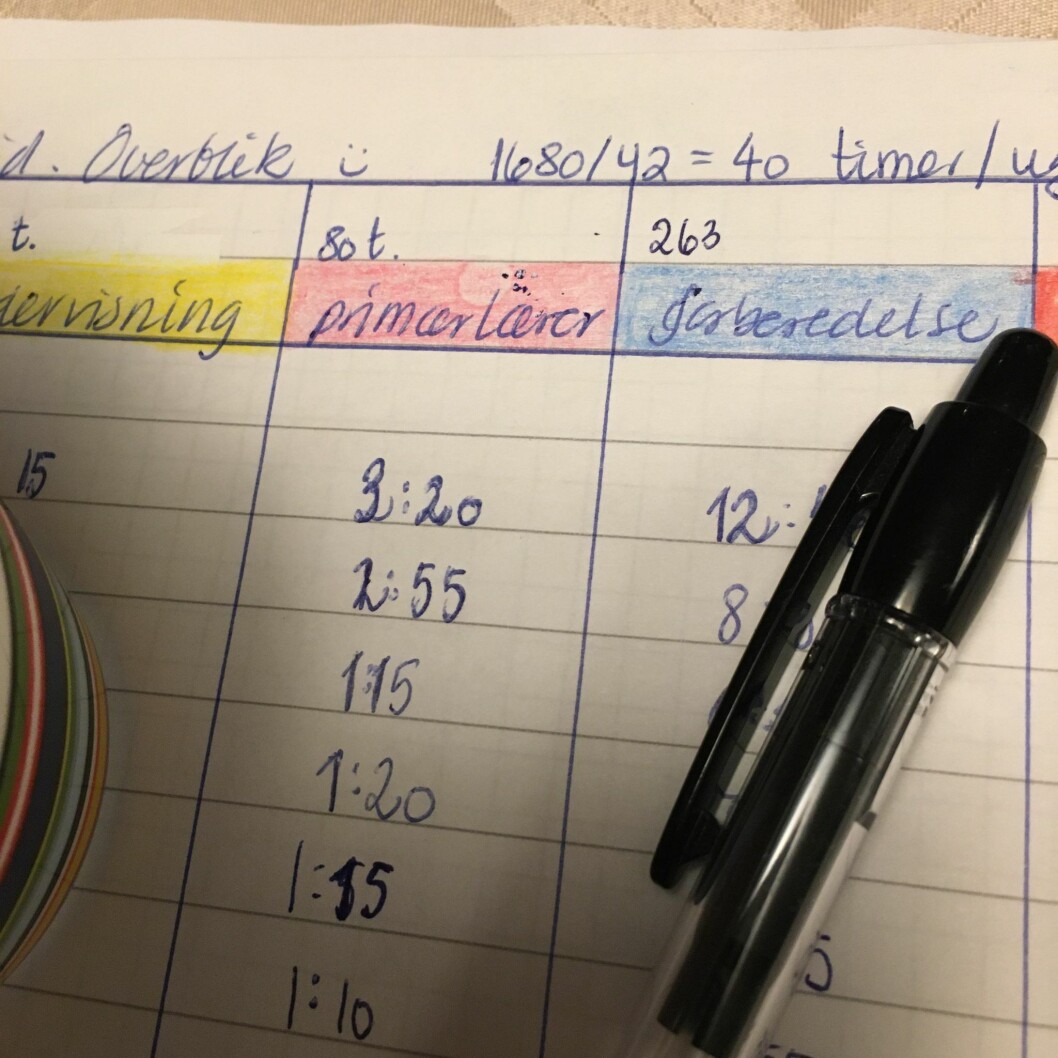 d. Overblik ü 1680/42 = 40 timer/ug
t. 80 t. 263
dervisning primærlærer forberedelse
15 3:20 12:
2:55 8
1:15
1:20
1:15
5
1:10